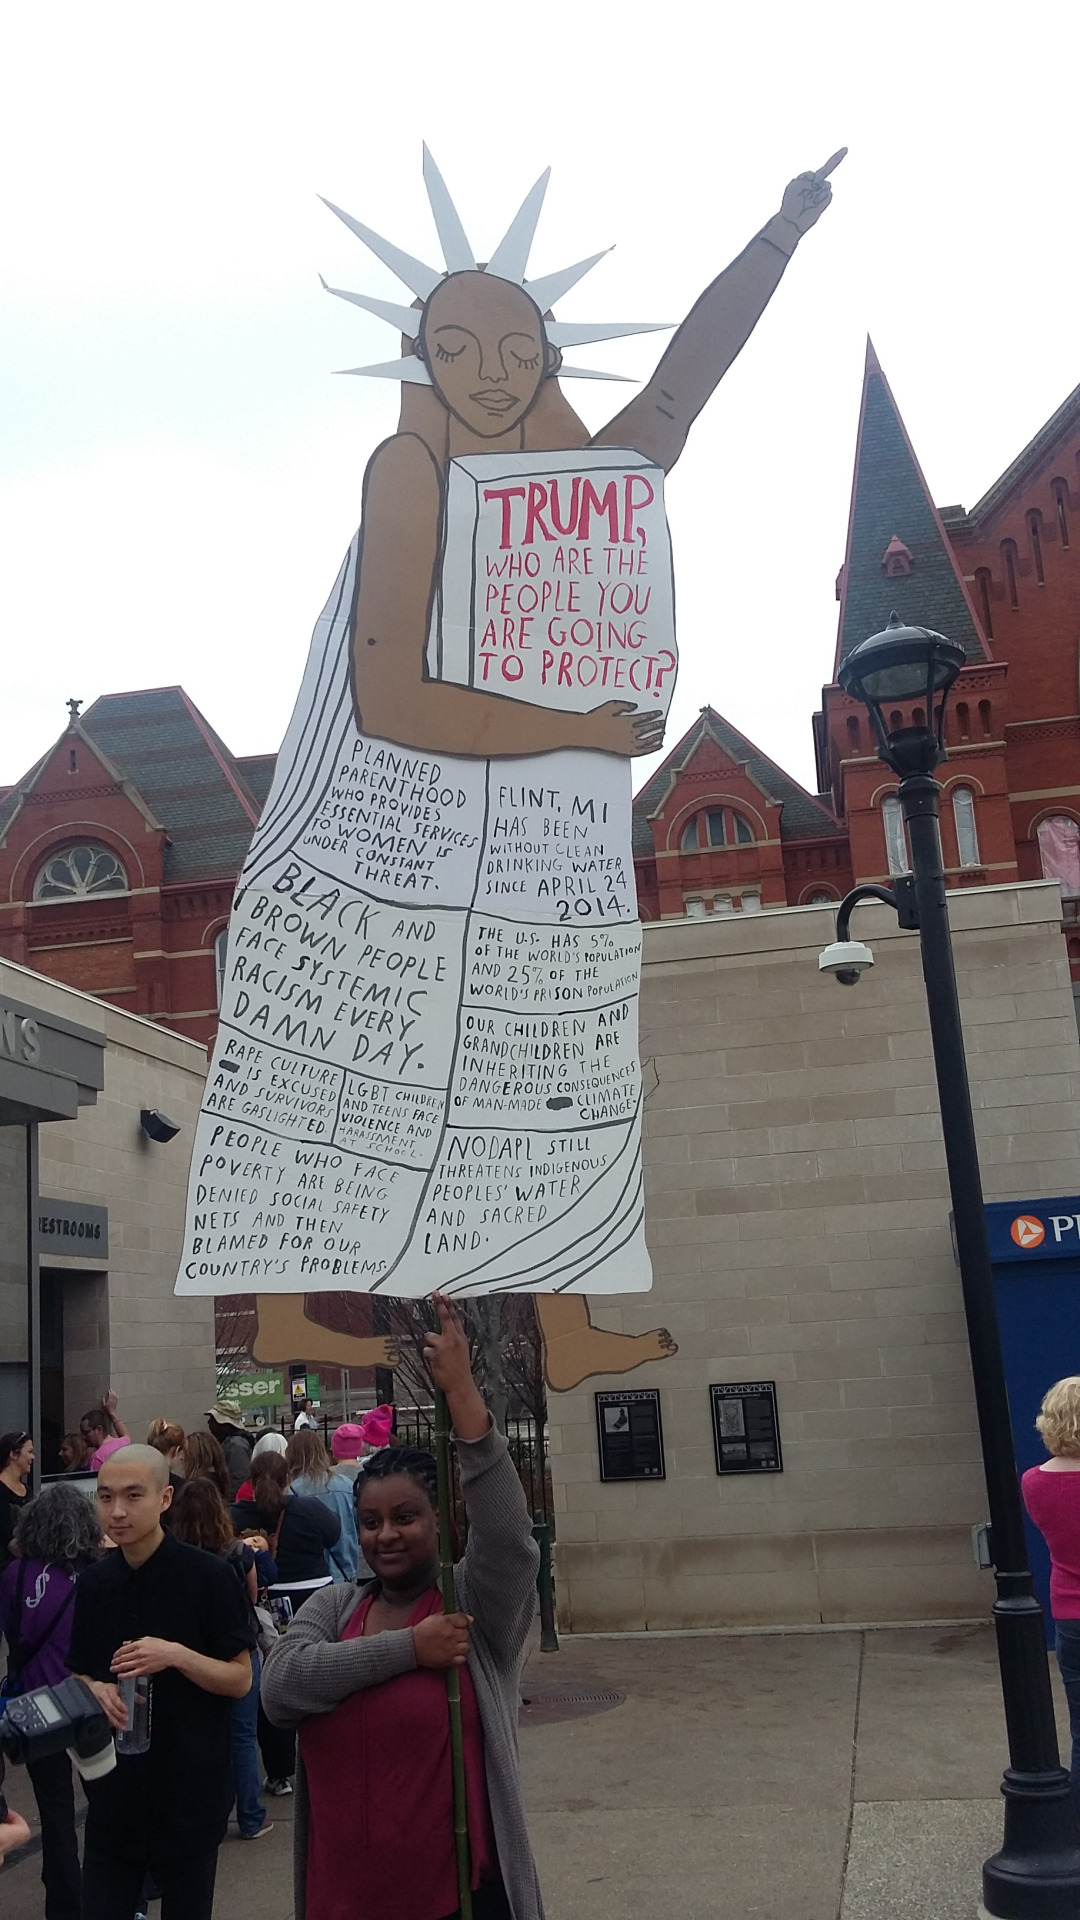 TRUMP,
WHO ARE THE
PEOPLE YOU
ARE GOING
TO PROTECT?
PLANNED
PARENTHOOD
WHO PROVIDES
ESSENTIAL SERVICES
TO WOMEN IS
UNDER CONSTANT
THREAT.
FLINT, MI
HAS BEEN
WITHOUT CLEAN
DRINKING WATER
SINCE APRIL 24
2014.
BLACK AND
BROWN PEOPLE
FACE SYSTEMIC
RACISM EVERY
DAMN DAY.
THE U.S. HAS 5%
OF THE WORLD'S POPULATION
AND 25% OF THE
WORLD'S PRISON POPULATION
OUR CHILDREN AND
GRANDCHILDREN ARE
INHERITING THE
DANGEROUS CONSEQUENCES
OF MAN-MADE CLIMATE
CHANGE.
RAPE CULTURE
IS EXCUSED
AND SURVIVORS
ARE GASLIGHTED.
LGBT CHILDREN
AND TEENS FACE
VIOLENCE AND
HARASSMENT
AT SCHOOL.
PEOPLE WHO FACE
POVERTY ARE BEING
DENIED SOCIAL SAFETY
NETS AND THEN
BLAMED FOR OUR
COUNTRY'S PROBLEMS.
NODAPL STILL
THREATENS INDIGENOUS
PEOPLES' WATER
AND SACRED
LAND.
NS
RESTROOMS
sser